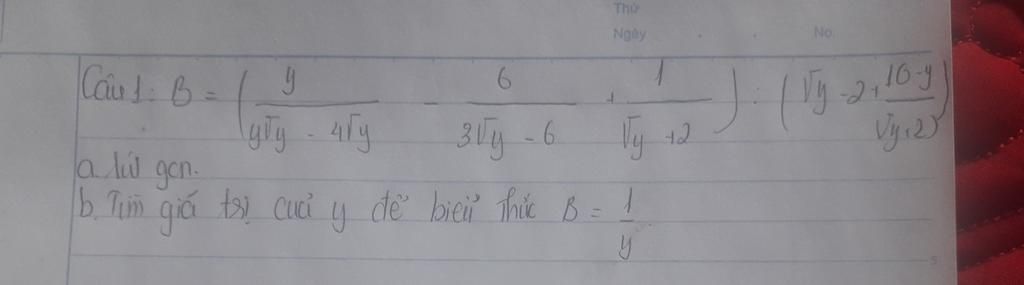 Thứ
Ngày . . No.
Câu 1: B = ( y / (y√y - 4√y) - 6 / (3√y - 6) + 1 / (√y + 2) ) : ( √y - 2 + (10 - y) / (√y + 2) )
a. rút gọn.
b. Tìm giá trị cuả y để biểu thức B = 1 / y